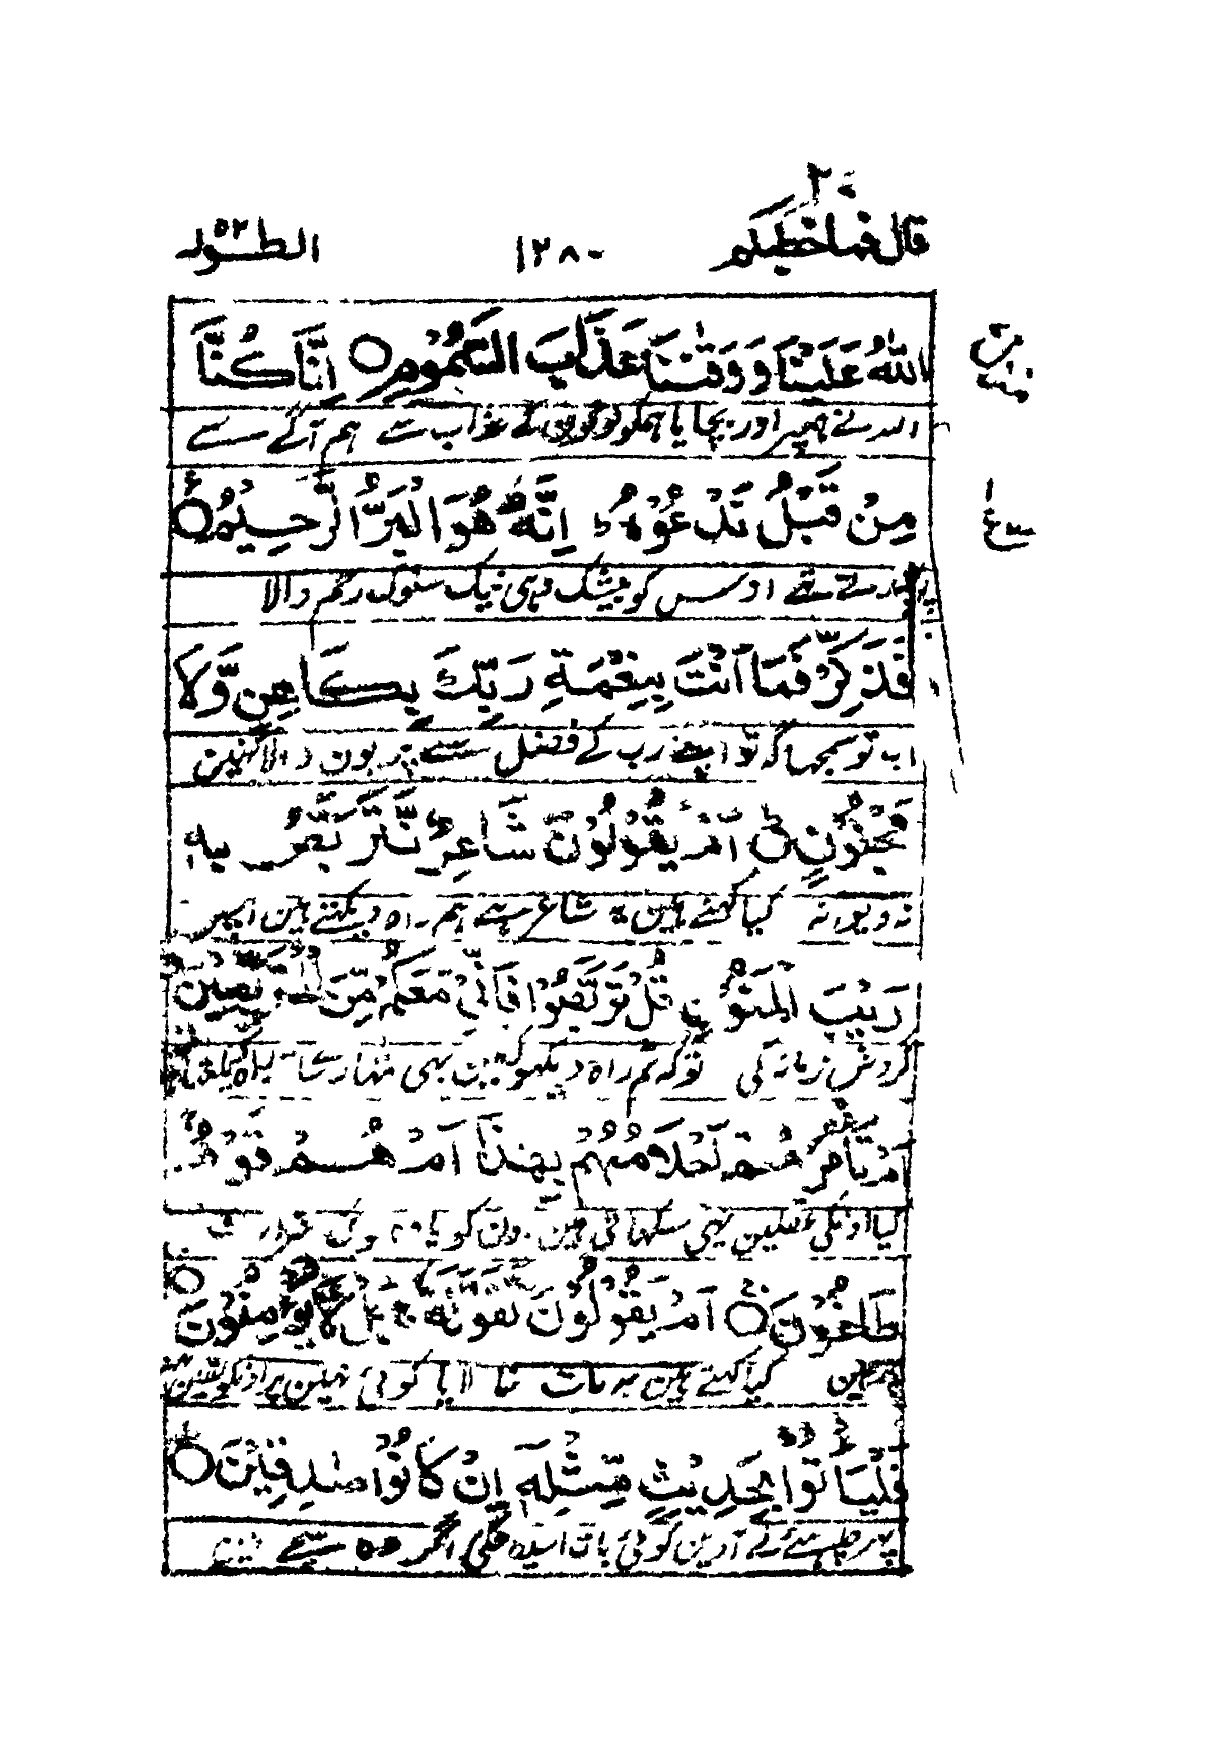 قال فما خطبكم ٢٧ ١٢٨٠ الطور ٥٢
اللهُ عَلَيْنَا وَوَقٰىنَا عَذَابَ السَّمُوْمِ ○ اِنَّا كُنَّا
اللہ نے ہمپر اور بچایا ہمکو لوؤن کے عذاب سے ہم آگے سے
مِنْ قَبْلُ نَدْعُوْهُ ؕ اِنَّهٗ هُوَ الْبَرُّ الرَّحِيْمُ ○
پکارتے تھے اوسس کو بیشک وہی نیک سلوک رحم والا
فَذَكِّرْ فَمَا اَنْتَ بِنِعْمَةِ رَبِّكَ بِكَاهِنٍ وَّلَا
اب تو سمجہا کہ تو اپنے رب کے فضل سے پریون والا نہین
مَجْنُوْنٍ ؕ اَمْ يَقُوْلُوْنَ شَاعِرٌ نَّتَرَبَّصُ بِهٖ
نہ دیوانہ کیا کہتے ہین یہ شاعر ہے ہم راہ دیکہتے ہین اسپر
رَيْبَ الْمَنُوْنِ قُلْ تَرَبَّصُوْا فَاِنِّيْ مَعَكُمْ مِّنَ الْمُتَرَبِّصِيْنَ
گردش زمانہ کی تو کہہ تم راہ دیکہو کہ مین بہی تمہارے ساتہ راہ
اَمْ تَاْمُرُهُمْ اَحْلَامُهُمْ بِهٰذَا اَمْ هُمْ قَوْمٌ
کیا اونکی عقلین یہی سکہاتی ہین اونکو یا وہ لوگ شرارت
طَاغُوْنَ ○ اَمْ يَقُوْلُوْنَ تَقَوَّلَهٗ بَلْ لَّا يُؤْمِنُوْنَ ○
پرہین کیا کہتے ہین یہ بات بنا لایا کوئی نہین پر اونکو یقین
فَلْيَاْتُوْا بِحَدِيْثٍ مِّثْلِهٖ اِنْ كَانُوْا صٰدِقِيْنَ ○
پہر چاہئے لے آوین کوئی بات اسطرح کی اگر وہ سچے ہین